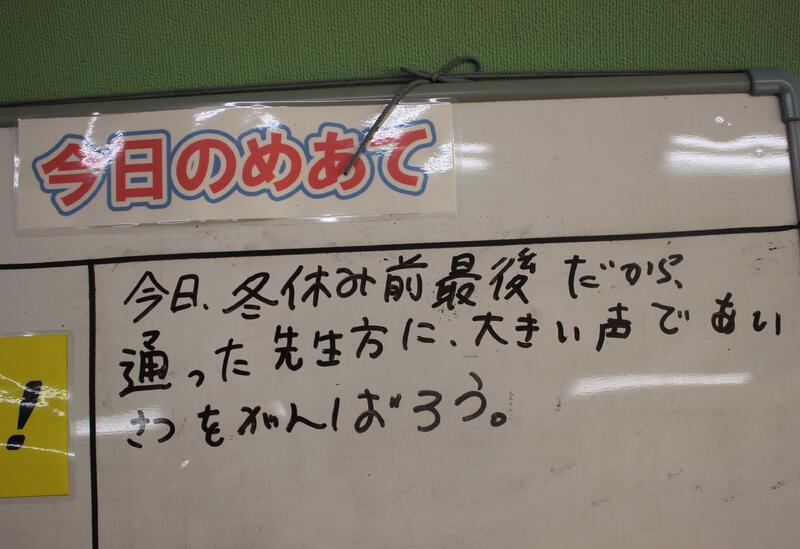 今日のめあて
今日、冬休み前最後だから、
通った先生方に、大きい声であい
さつをがんばろう。
!